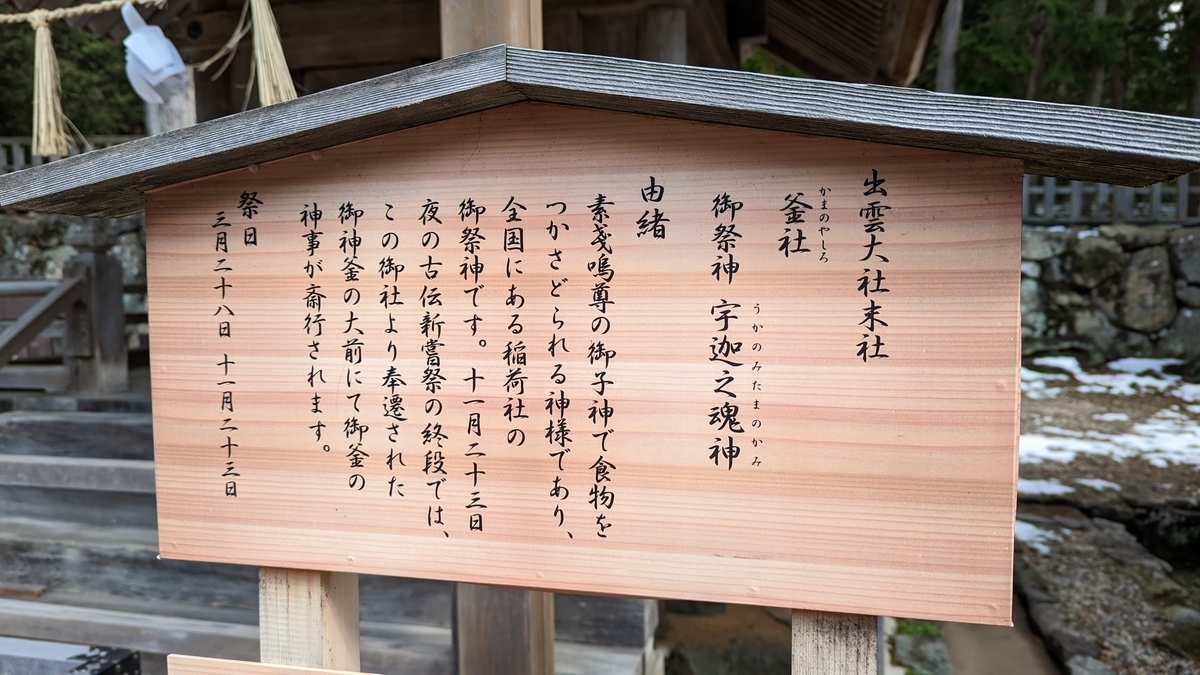 出雲大社末社
かまのやしろ
釜社
御祭神 宇迦之魂神
うかのみたまのかみ
由緒
素戔嗚尊の御子神で食物を
つかさどられる神様であり、
全国にある稲荷社の
御祭神です。十一月二十三日
夜の古伝新嘗祭の終段では、
この御社より奉遷された
御神釜の大前にて御釜の
神事が斎行されます。
祭日
三月二十八日 十一月二十三日